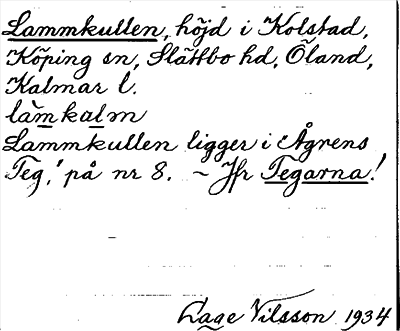 Lammkullen, höjd i Kolstad,
Köping sn, Slättbo hd, Öland,
Kalmar l.
làmkalm
Lammkullen ligger i "Ågrens
Teg," på nr 8. – Jfr Tegarna!
Lage Nilsson 1934